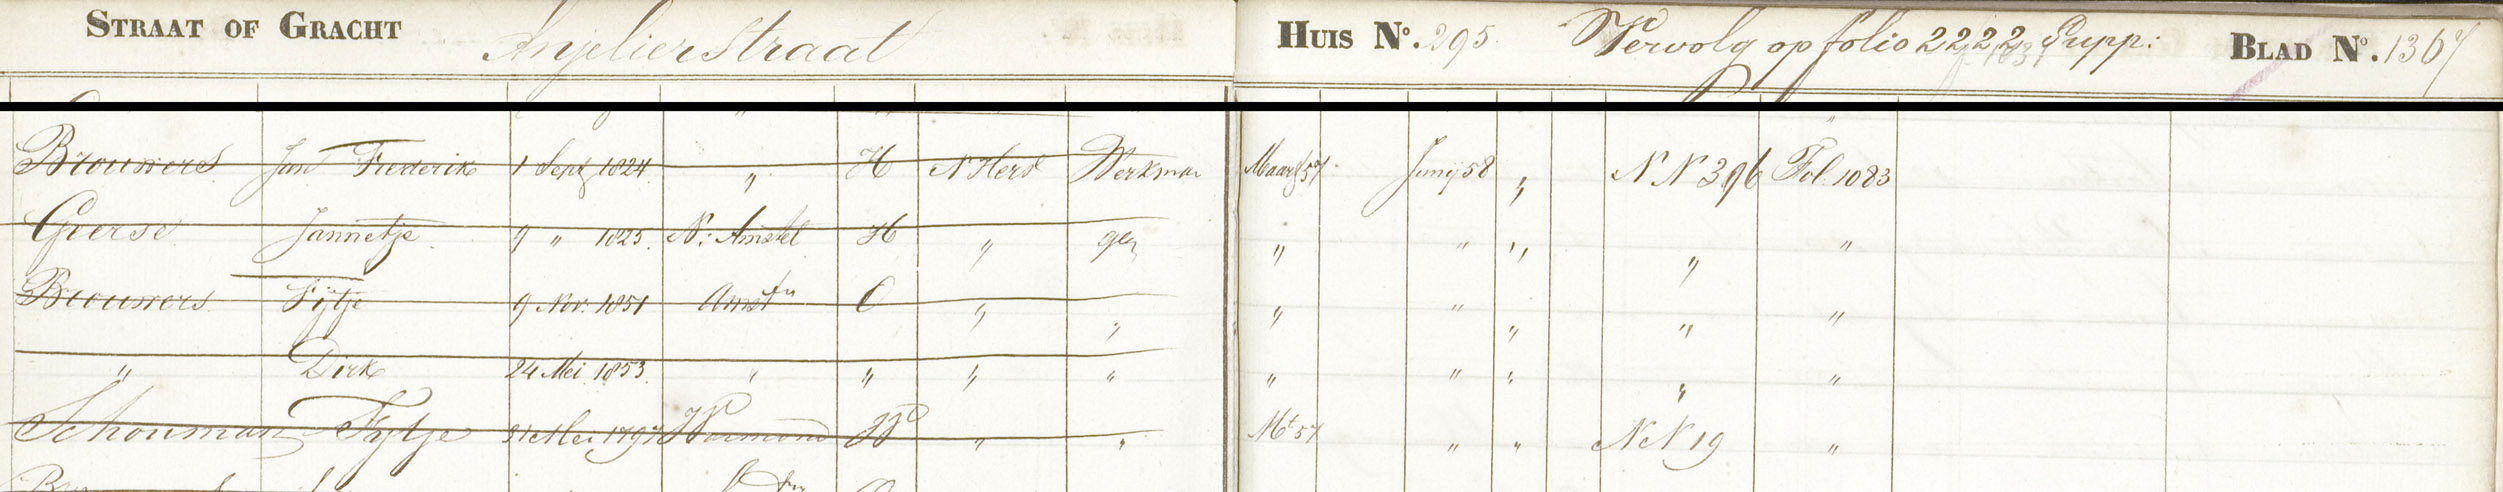 STRAAT OF GRACHT Anjelierstraat HUIS No. 295. Vervolg op folio 2222 Supp: BLAD No. 1367
Brouwers Jan Frederik 1 Sept 1824 " H N Herv Werkman Maart 57 Junij 58 " N N 396 Fol. 1083
Gierse Jannetje 9 " 1825. N: Amstel H " geen " " " " "
Brouwers Fijtje 9 Nov. 1851 Amstm O " " " " " " "
" Dirk 24 Mei 1853. " " " " " " " " "
Schouman Fytje 31 Mei 1797 Warmond W " " Mt 57 " " N N 19 "